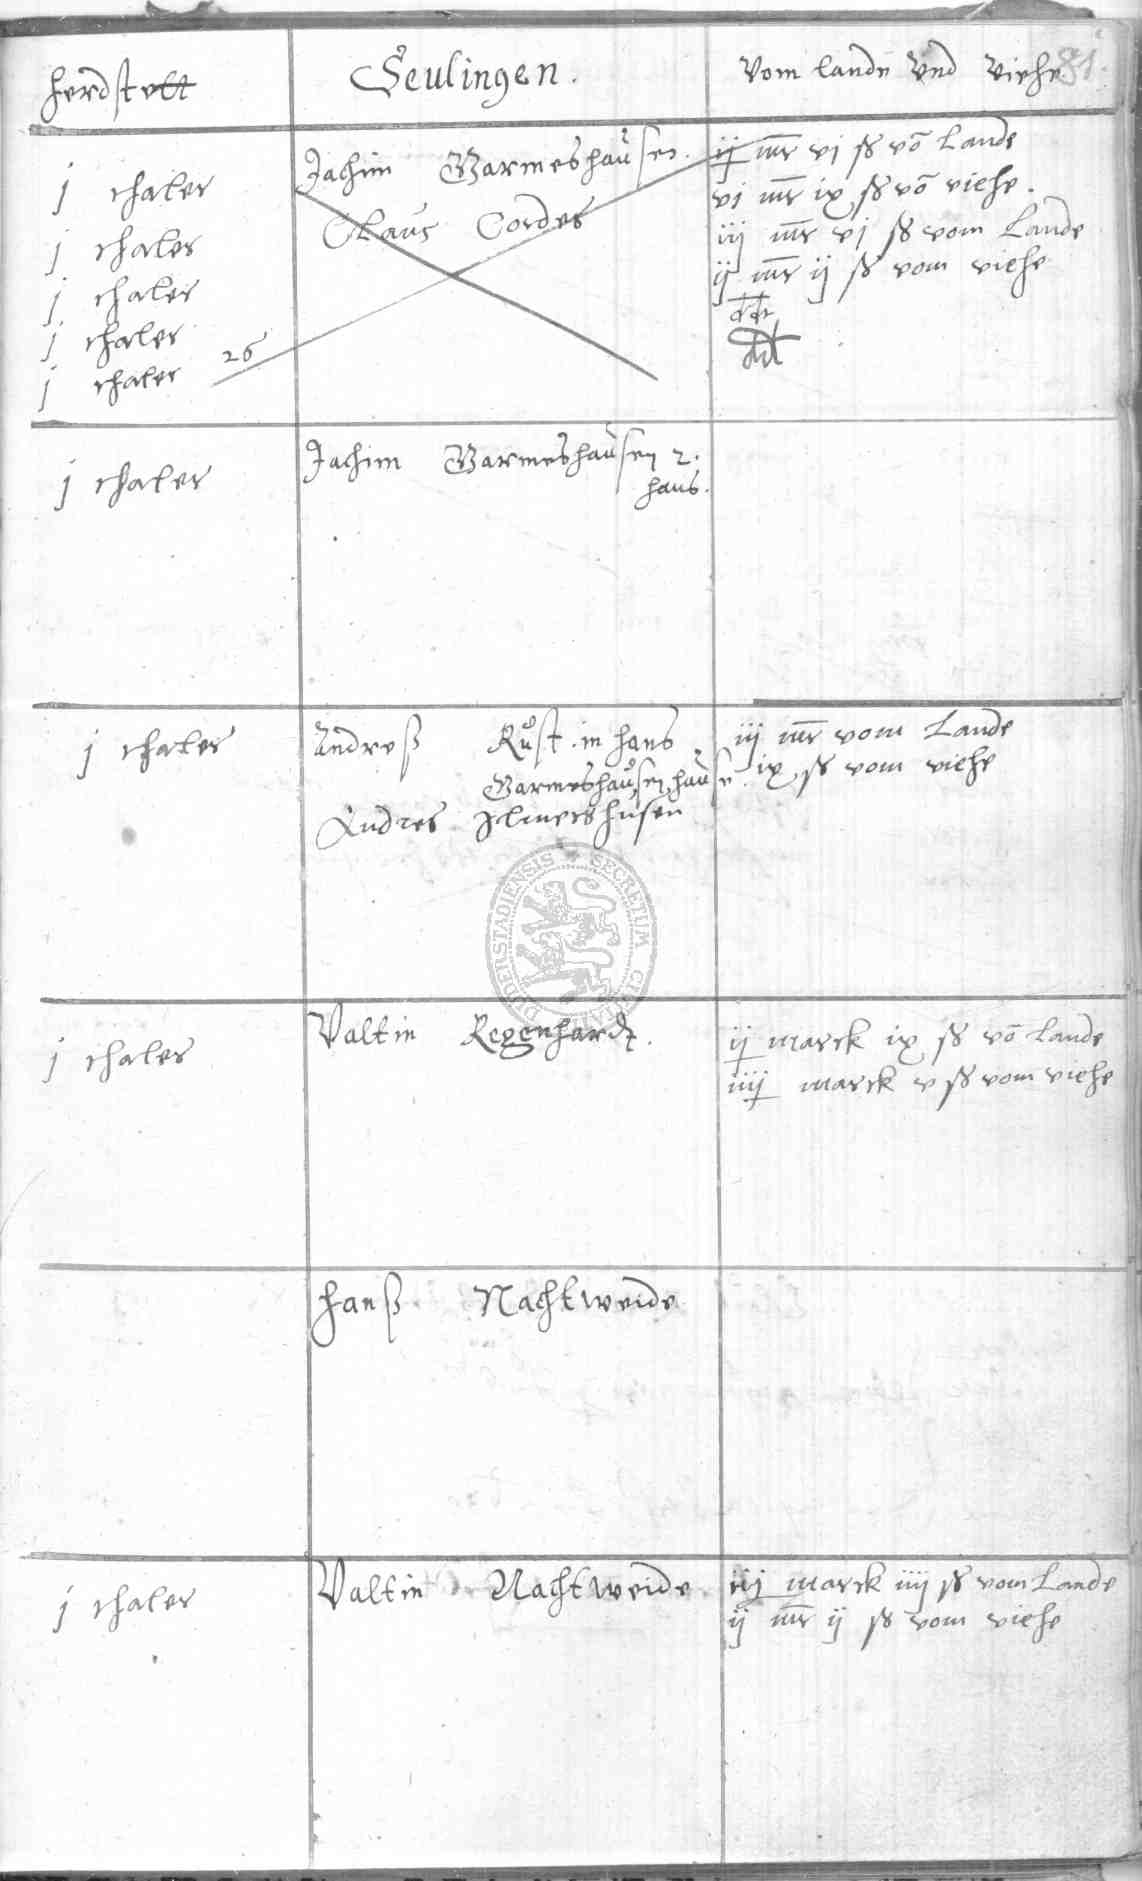 Herdstett
Seulingen.
Vom lande vnd viehe 81.
j thaler
j thaler
j thaler
j thaler
j thaler
26
Jachim Warmeshausen.
Claus Cordes
ij mr vi ß vō Lande
vi mr ix ß vō viehe.
iij mr vj ß vom Lande
ij mr ij ß vom viehe
j thaler
Jachim Warmeshausen 2.
haus.
j thaler
Andreß Rust in hans
Warmeshausen hause
Andres
iij mr vom Lande
ix ß vom viehe
DUDERSTADIENSIS SECRETUM
j thaler
Valtin Regenhardt.
ij marck ix ß vō Lande
iiij marck v ß vom viehe
Hanß Nachtweide
j thaler
Valtin Nachtweide
iij marck iiij ß vom Lande
ij mr ij ß vom viehe